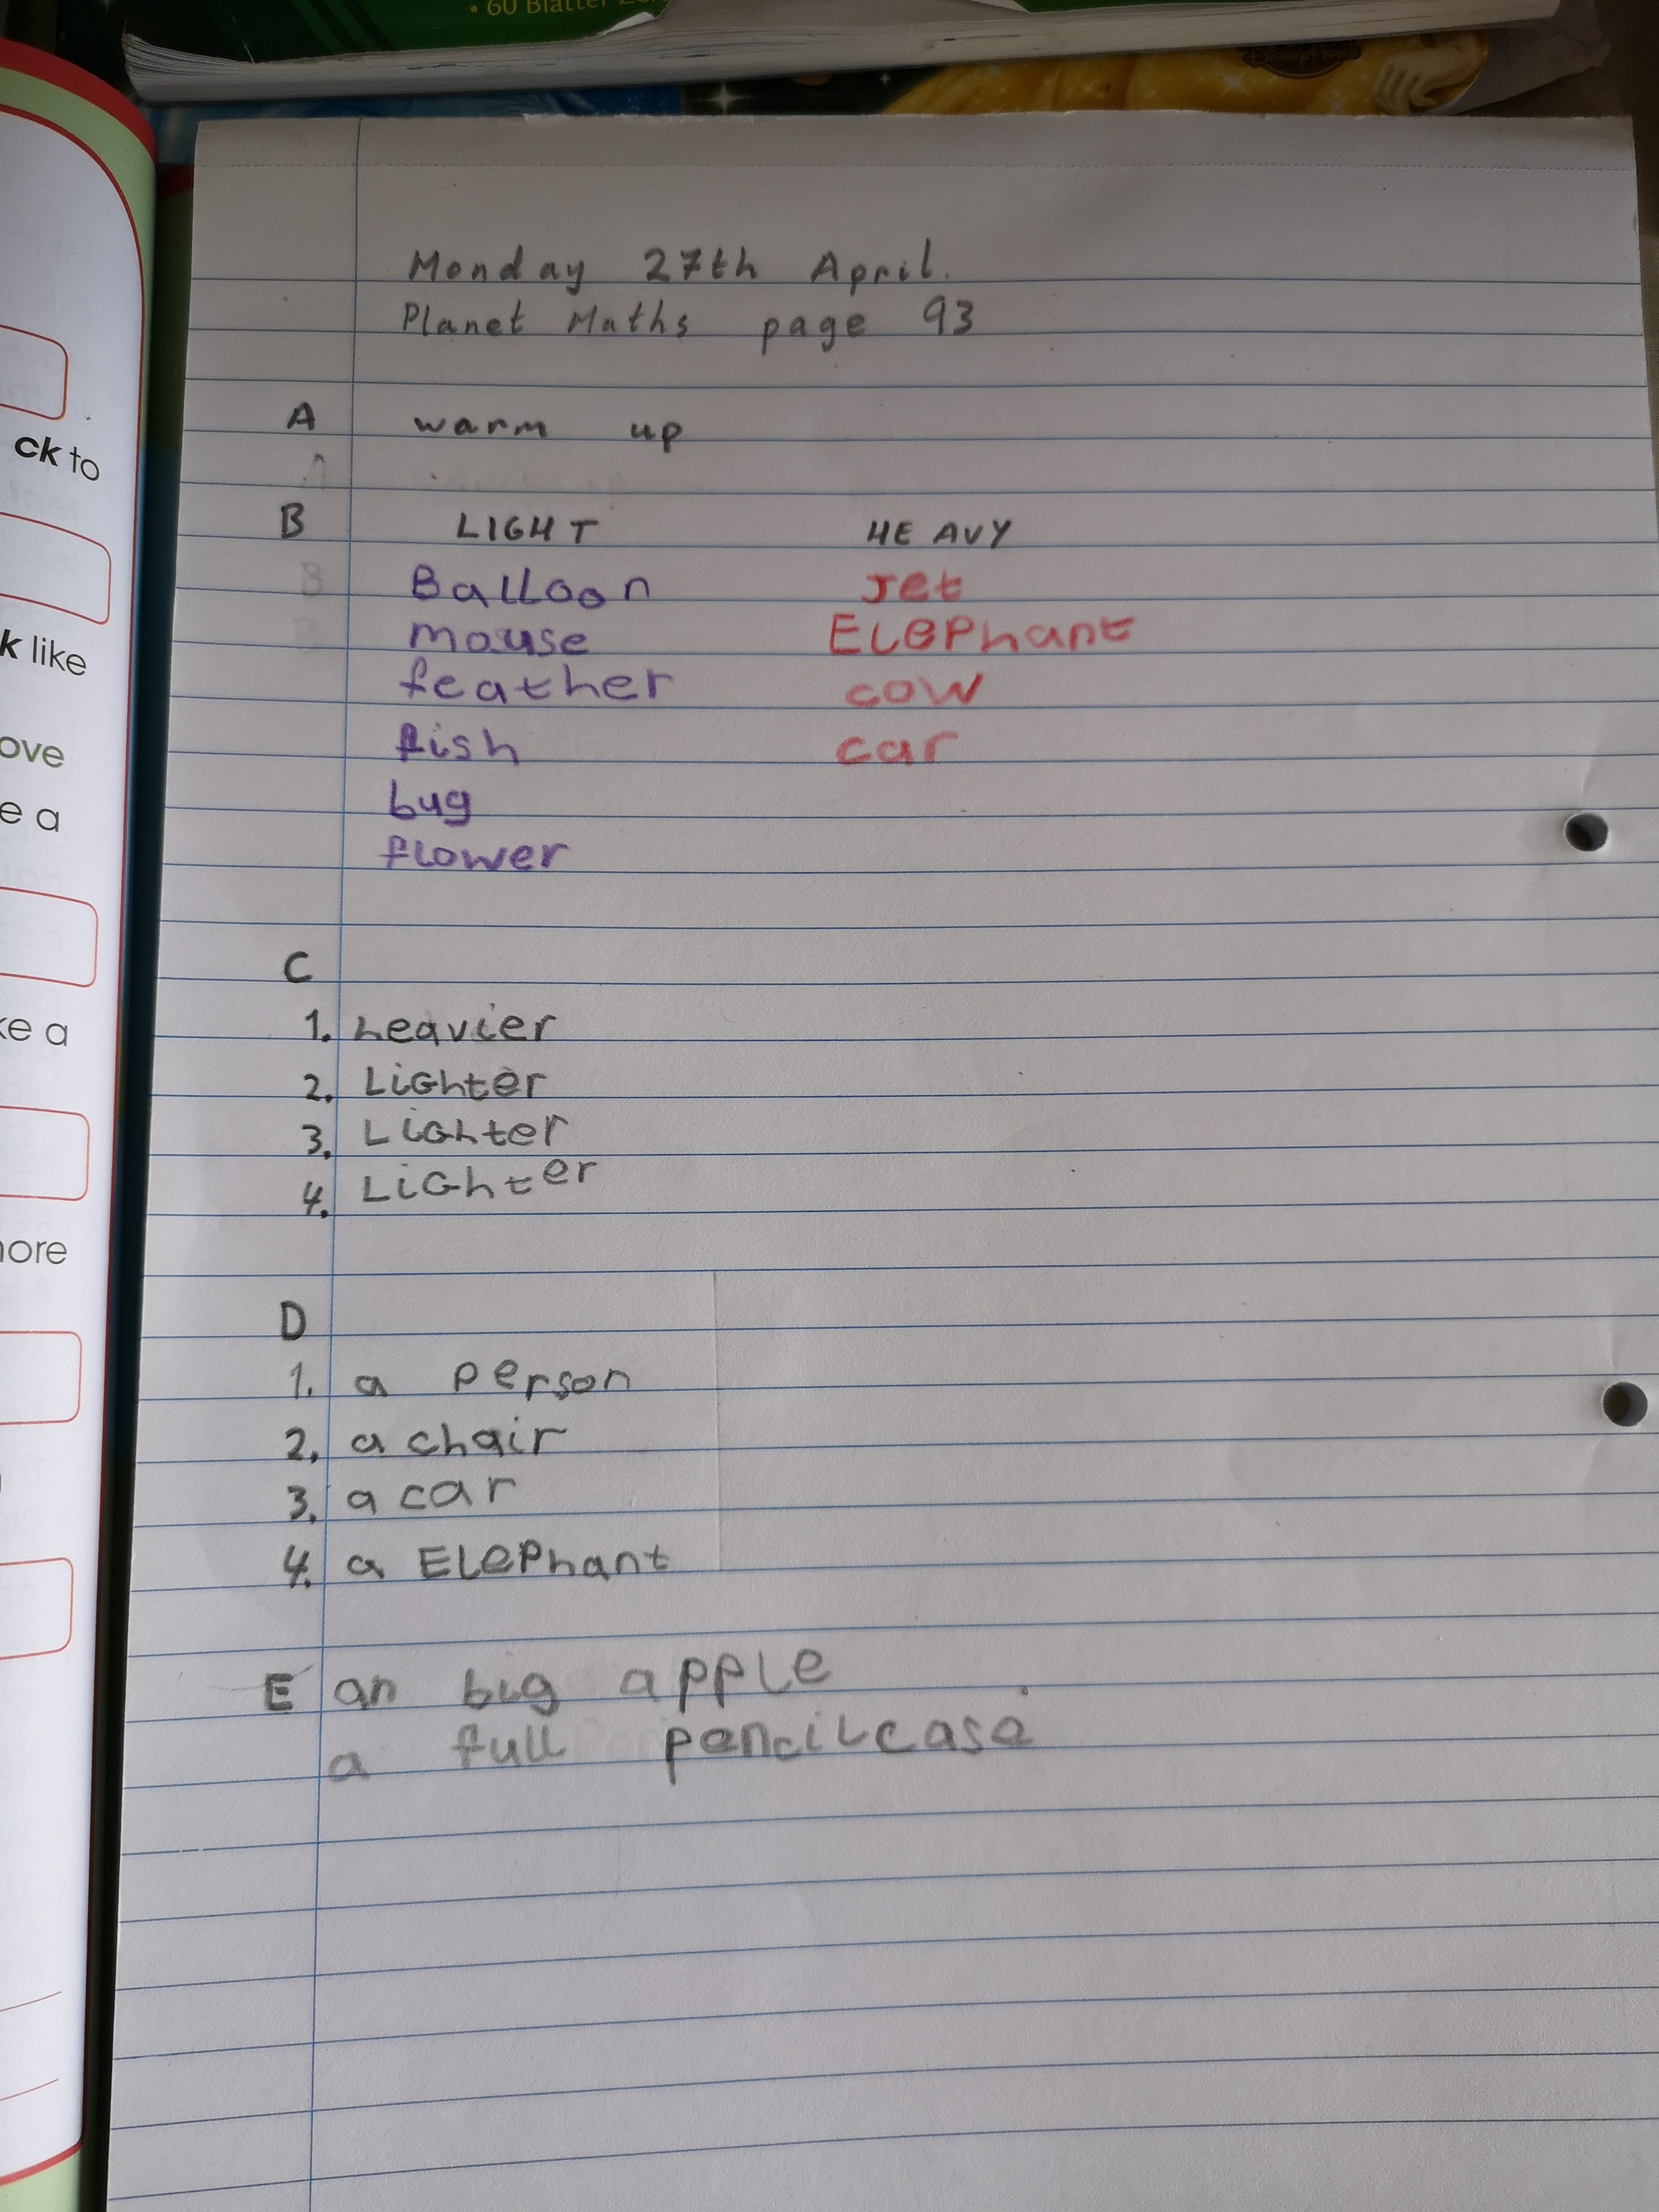 • 60 Blätter
Monday 27th April.
Planet Maths page 93
A warm up
B LIGHT HEAVY
Balloon Jet
mouse ELePhant
feather cow
fish car
bug
flower
C
1. heavier
2. Lighter
3. Lighter
4. Lighter
D
1. a person
2. a chair
3. a car
4. a ELePhant
E an big apple
a full pencilcase
ck to
k like
ove
e a
ke a
ore